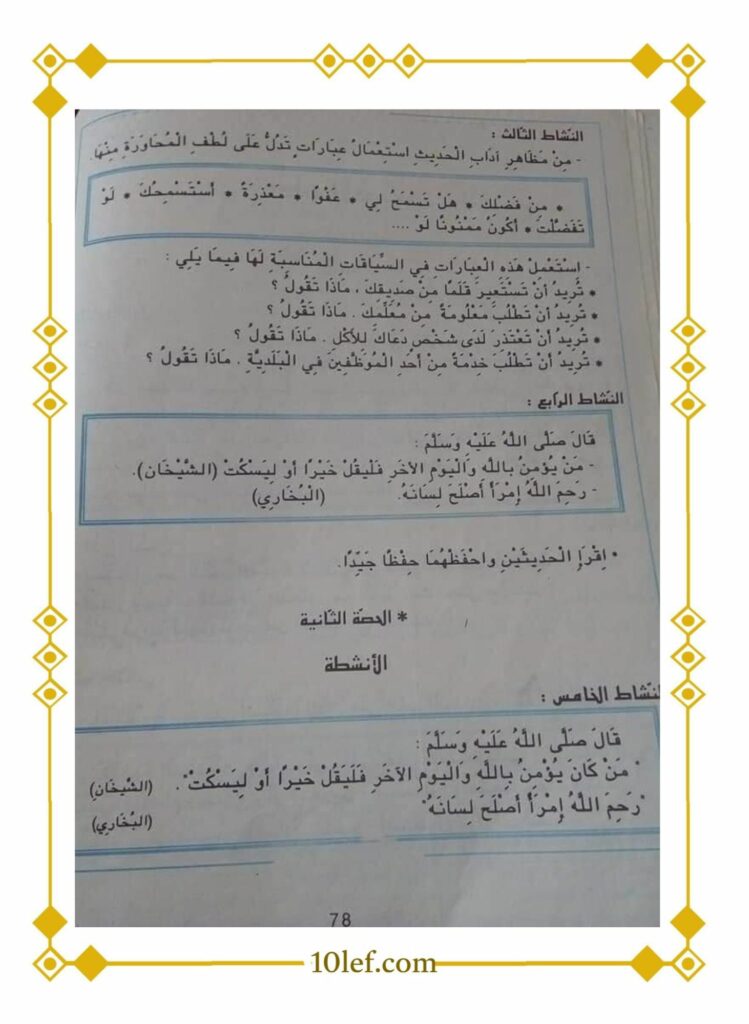 النشاط الثالث :
- مِنْ مَظَاهِرِ آدَابِ الْحَدِيثِ اسْتِعْمَالُ عِبَارَاتٍ تَدُلُّ عَلَى لُطْفِ الْمُحَاوَرَةِ مِنْهَا.
* مِنْ فَضْلِكَ * هَلْ تَسْمَحُ لِي * عَفْوًا * مَعْذِرَةً * أَسْتَسْمِحُكَ * لَوْ
تَفَضَّلْتَ * أَكُونُ مَمْنُونًا لَوْ ....
- اسْتَعْمِلْ هَذِهِ الْعِبَارَاتِ فِي السِّيَاقَاتِ الْمُنَاسِبَةِ لَهَا فِيمَا يَلِي :
* تُرِيدُ أَنْ تَسْتَعِيرَ قَلَمًا مِنْ صَدِيقِكَ ، مَاذَا تَقُولُ ؟
* تُرِيدُ أَنْ تَطْلُبَ مَعْلُومَةً مِنْ مُعَلِّمِكَ . مَاذَا تَقُولُ ؟
* تُرِيدُ أَنْ تَعْتَذِرَ لَدَى شَخْصٍ دَعَاكَ لِلأَكْلِ . مَاذَا تَقُولُ ؟
* تُرِيدُ أَنْ تَطْلُبَ خِدْمَةً مِنْ أَحَدِ الْمُوَظَّفِينَ فِي الْبَلَدِيَّةِ . مَاذَا تَقُولُ ؟
النشاط الرابع :
قَالَ صَلَّى اللَّهُ عَلَيْهِ وَسَلَّمَ :
- مَنْ يُؤْمِنُ بِاللَّهِ وَالْيَوْمِ الآخَرِ فَلْيَقُلْ خَيْرًا أَوْ لِيَسْكُتْ (الشَّيْخَانِ).
- رَحِمَ اللَّهُ إِمْرَأً أَصْلَحَ لِسَانَهُ. (الْبُخَارِي)
• اِقْرَإِ الْحَدِيثَيْنِ وَاحْفَظْهُمَا حِفْظًا جَيِّدًا.
* الحصة الثانية
الأنشطة
النشاط الخامس :
قَالَ صَلَّى اللَّهُ عَلَيْهِ وَسَلَّمَ :
" مَنْ كَانَ يُؤْمِنُ بِاللَّهِ وَالْيَوْمِ الآخَرِ فَلْيَقُلْ خَيْرًا أَوْ لِيَسْكُتْ". (الشَّيْخَانِ)
"رَحِمَ اللَّهُ إِمْرَأً أَصْلَحَ لِسَانَهُ" (البُخَارِي)
78
10lef.com